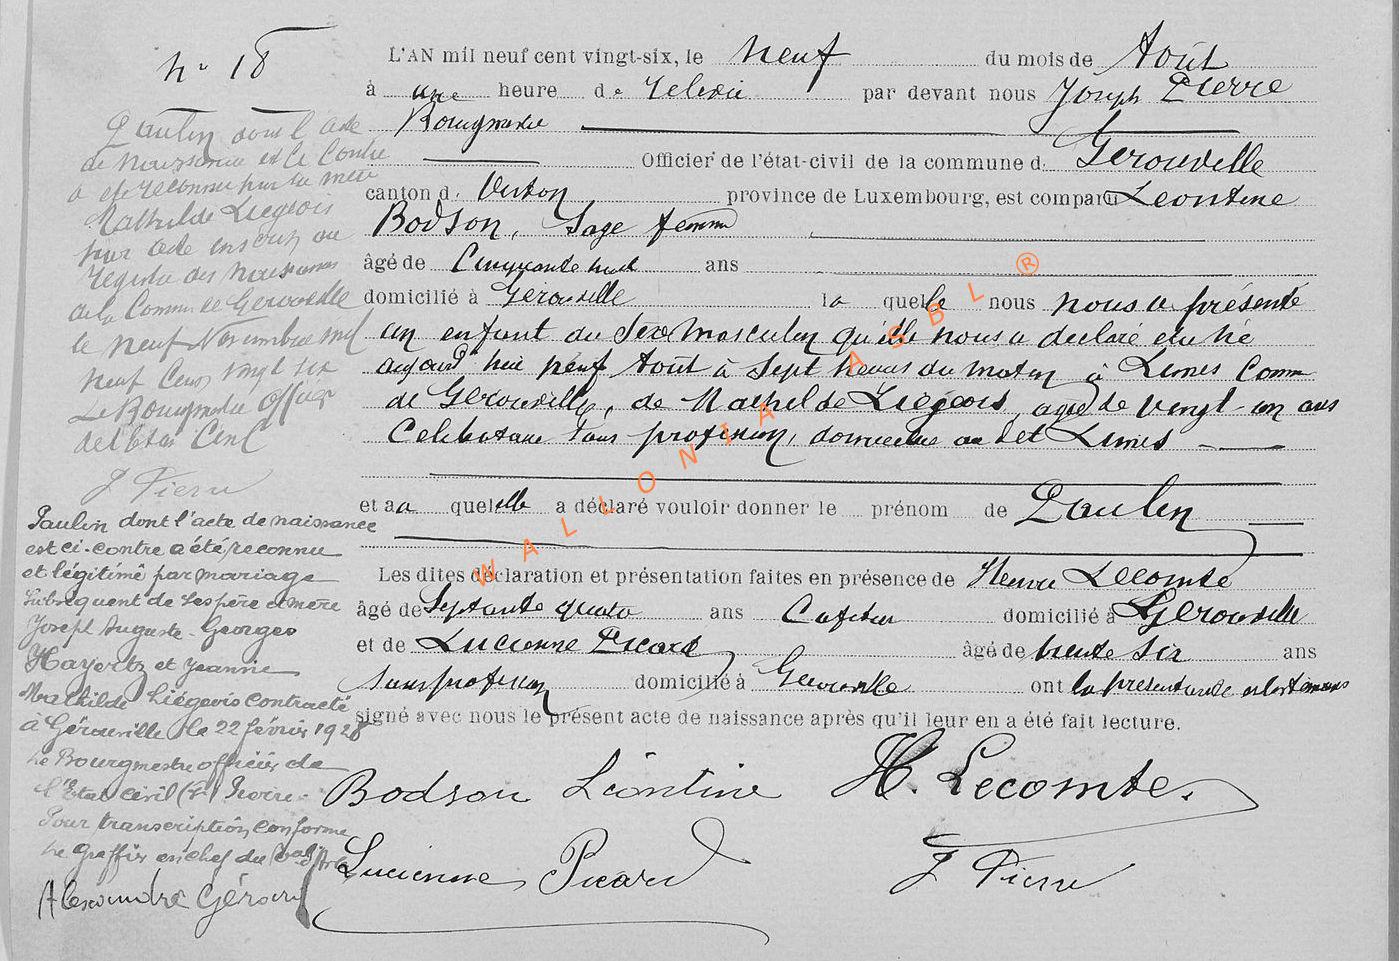 N° 18
Paulin dont l'acte
de naissance est ci Contre
a été reconnu par sa mère
Mathilde Liégeois
par acte inscrit au
registre des naissances
de la Commune de Gerouville
le neuf Novembre mil
neuf Cent vingt six
Le Bourgmestre Officier
de l'état Civil
J Pierre
Paulin dont l'acte de naissance
est ci-contre a été reconnu
et légitimé par mariage
subséquent de ses père et mère
Joseph Auguste-Georges
Hayertz et Jeanne
Mathilde Liégeois contracté
à Gérouville le 22 février 1928
Le Bourgmestre officier de
l'Etat civil (s) Pierre.
Pour transcription conforme
Le Greffier en chef du
Alexandre Gérard
L'AN mil neuf cent vingt-six, le neuf du mois de Août
à une heure de relevée par devant nous Joseph Pierre
Bourgmestre
Officier de l'état-civil de la commune d. Gerouville
canton d. Virton province de Luxembourg, est comparu Leontine
Bodson, Sage femme
âgé de Cinquante huit ans
domicilié à Gerouville la quelle nous nous a présenté
un enfant du Sexe masculin qu'elle nous a déclaré être né
aujourd'hui neuf Août à Sept heures du matin à Limes Comm
de Gerouville, de Mathilde Liegeois, agée de vingt-un ans
Celibataire sans profession, domiciliée au dit Limes
et a a quelle a déclaré vouloir donner le prénom de Paulin
Les dites déclaration et présentation faites en présence de Henri Lecomte
âgé de Septante quatre ans domicilié à Gerouville
et de Lucienne Picard âgé de trente six ans
sans profession domicilié à Gerouville ont la présentante et les témoins
signé avec nous le présent acte de naissance après qu'il leur en a été fait lecture.
Bodson Léontine H. Lecomte.
Lucienne Picard J Pierre
WALLONIA ASBL ®